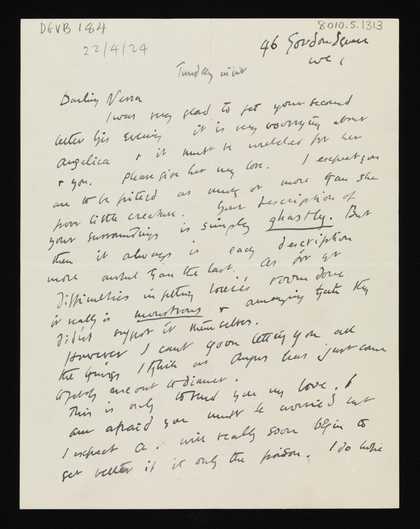 DGVB 184
8010.5.1313
22/4/24
46 Gordon Square
WC1
Tuesday night
Darling Nessa
I was very glad to get your second
letter this evening it is very worrying about
Angelica & it must be wretched for her
& you. Please give her my love. I expect you
are to be pitied as much or more than she
poor little creature. Your description of
your surroundings is simply ghastly. But
then it always is each description
more awful than the last. As for yr
difficulties in getting Louie's room done
it really is monstrous & amazing that they
didn't suggest it themselves.
However I can't go on telling you all
the things I think as Angus has just come
to fetch me out to dinner.
This is only to send you my love. I
am afraid you must be worried but
I expect A. will really soon begin to
get better if it is only the poison. I do hope